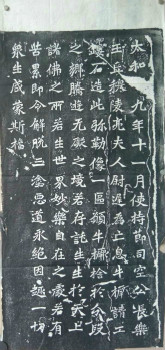 太和九年十一月使持節司空公長樂
王丘穆陵亮夫人尉遲為亡息牛橛請工
鏤石造此彌勒像一區願牛橛捨於分段
之鄉騰遊無礙之境若存託生生於天上
諸佛之所若生世界妙樂自在之處若有
苦累即令解脫三塗惡道永絕因趣一切
衆生咸蒙斯福